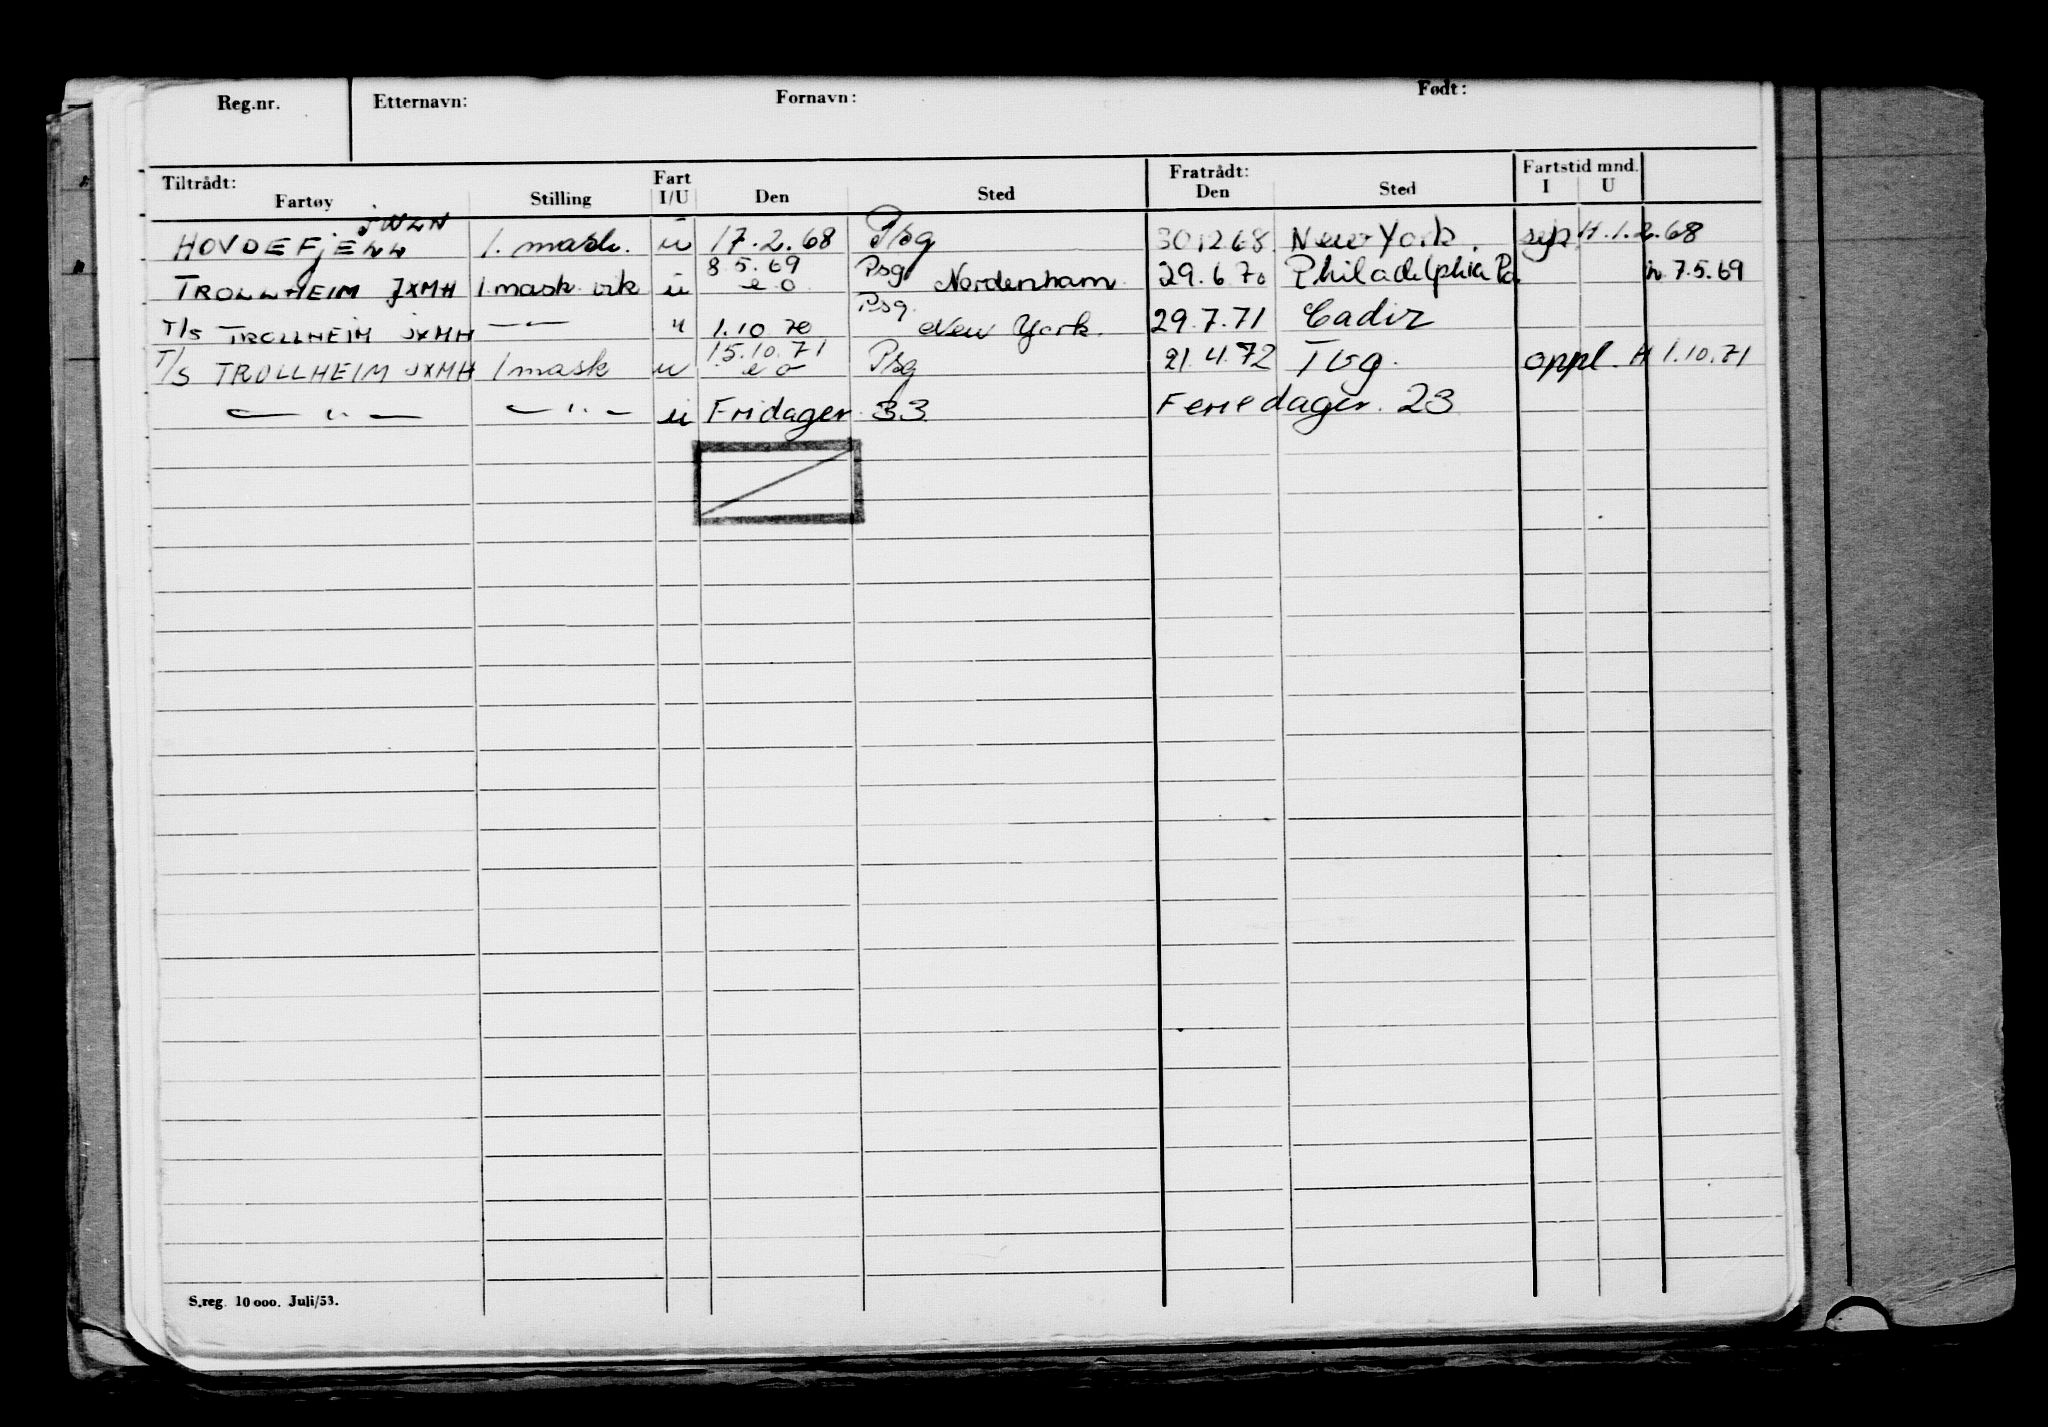 Reg.nr. Etternavn: Fornavn: Født:
Tiltrådt: Fart Fratrådt: Fartstid mnd.
Fartøy Stilling I/U Den Sted Den Sted I U
JWLN
HOVDEFJELL 1. mask. u 17.2.68 Psg 30 12 68 New York. syk H.1.2.68
8 5. 69 Psg
TROLLHEIM JXMH 1 mask vik u e o Nordenham 29.6.70 Philadelphia Pa h. 7.5.69
Psg.
T/S TROLLHEIM JXMH —"— u 1.10 70 New York. 29.7.71 Cadiz
15.10.71
T/S TROLLHEIM JXMH 1 mask u e o Psg 21.4.72 Tvg. oppl. H 1.10.71
— " — — " — u Fridager 33 Feriedager. 23
S.reg. 10 000. Juli/53.